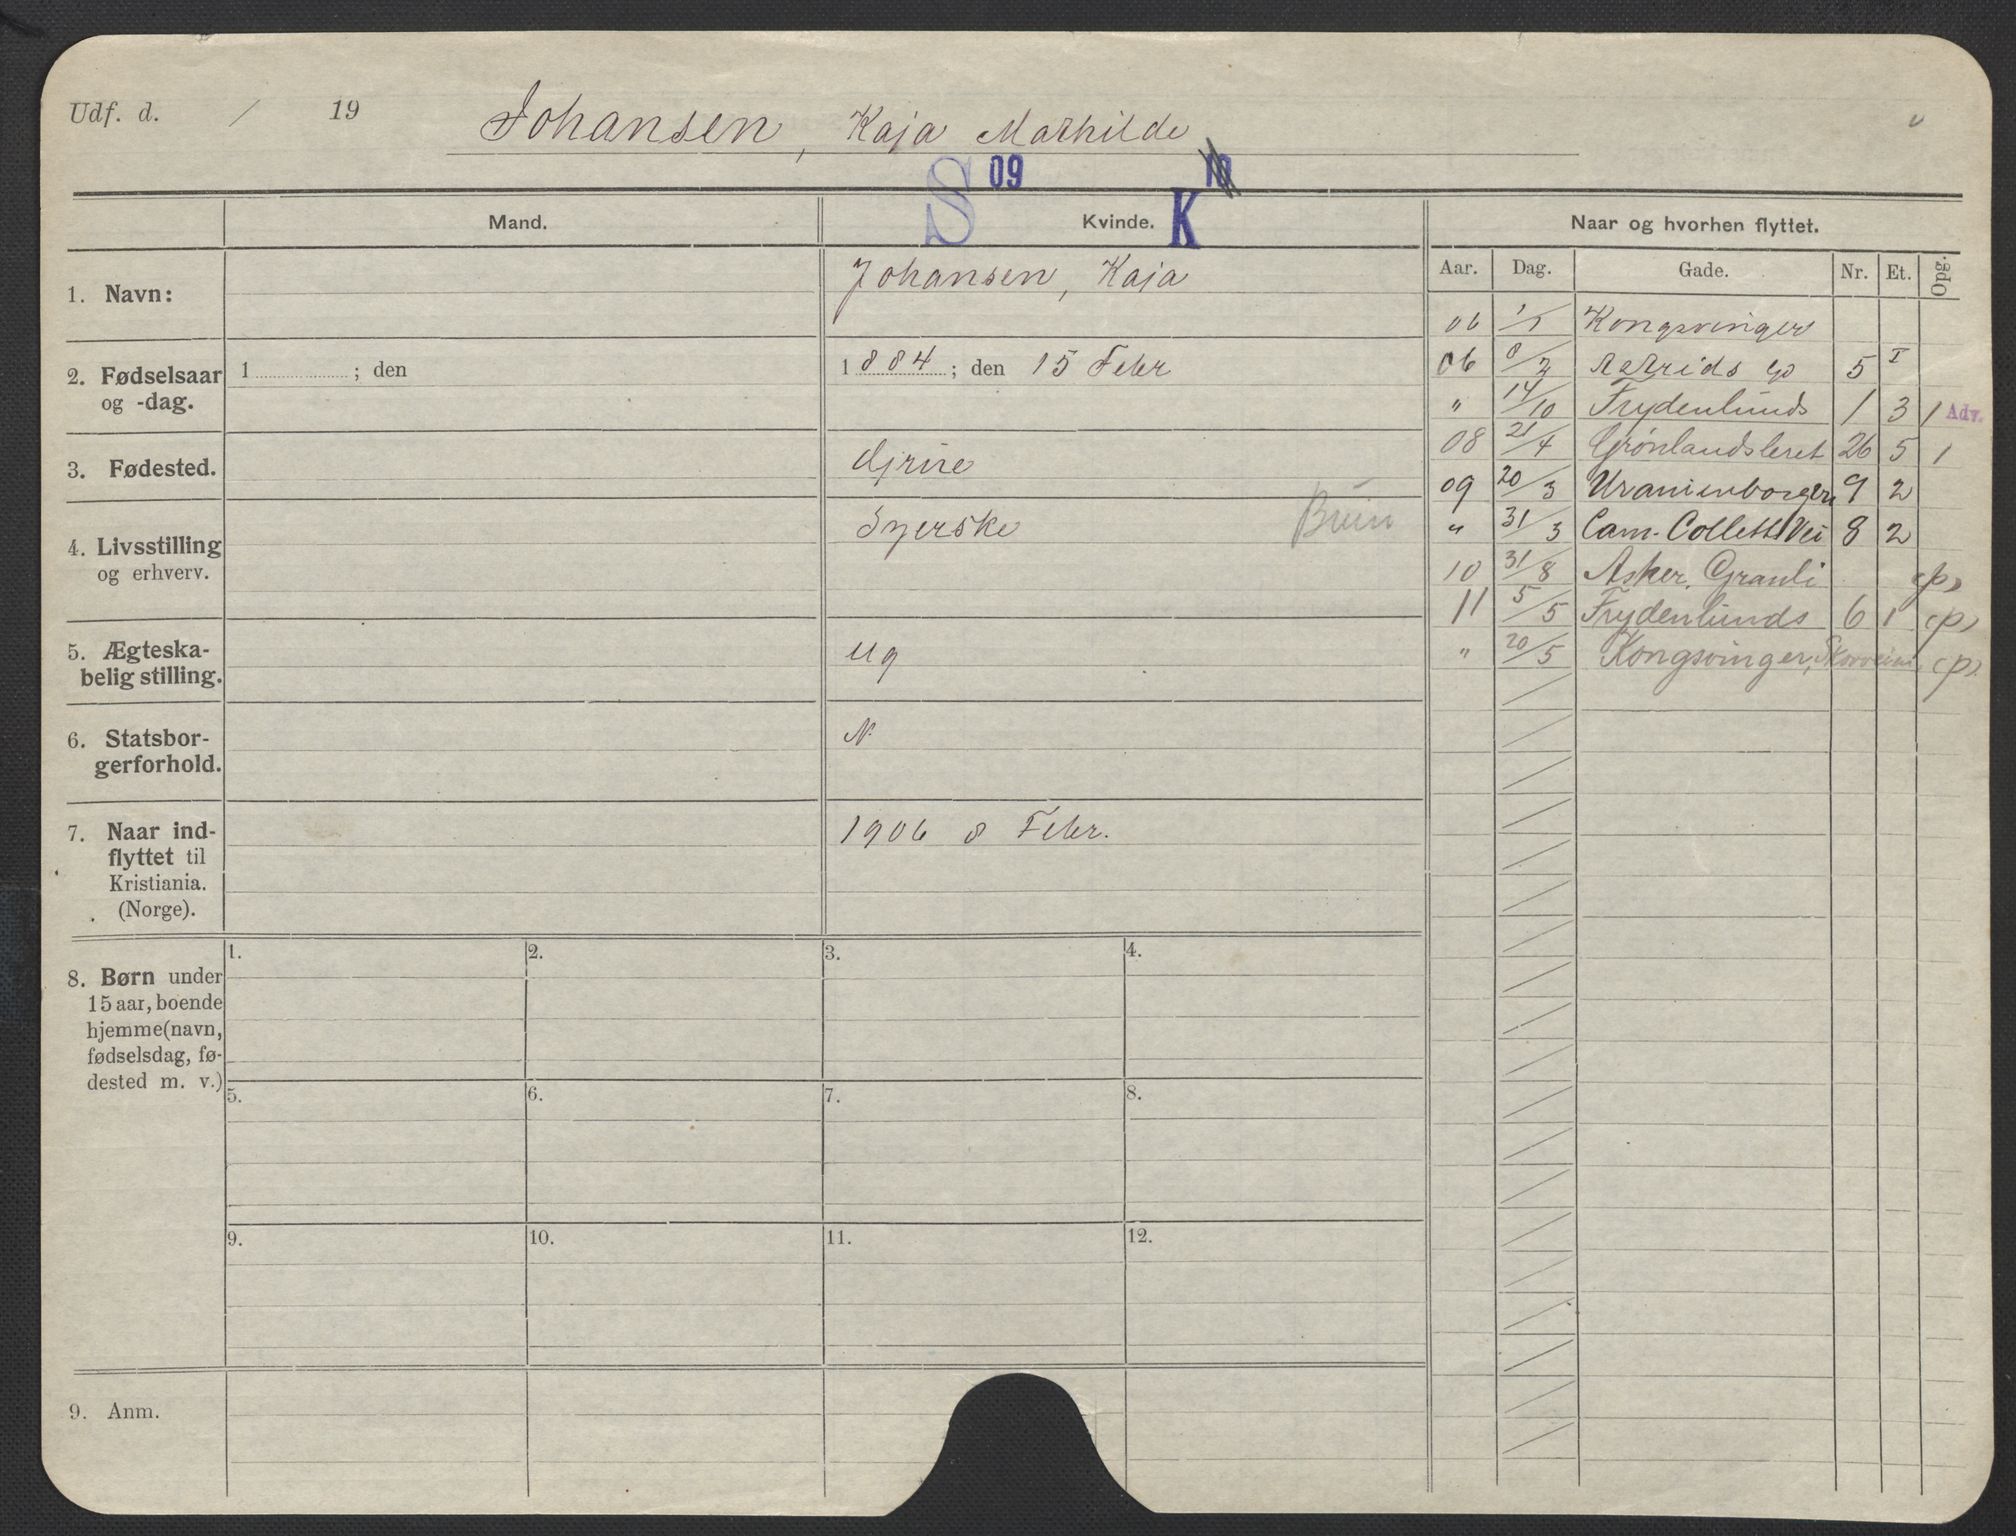 Udf. d. / 19 Johansen, Kaja Mathilde
S 09 K
Mand. Kvinde. Naar og hvorhen flyttet.
Aar. Dag. Gade. Nr. Et. Opg.
1. Navn: Johansen, Kaja
2. Fødselsaar og -dag. 1 ; den 1884 ; den 15 Febr
3. Fødested. Grue
4. Livsstilling og erhverv. Syerske
5. Ægteska-
belig stilling. Ug
6. Statsbor-
gerforhold. N.
7. Naar ind-
flyttet til
Kristiania.
(Norge). 1906 8 Febr.
06 1/1 Kongsvinger
06 8/2 Astrids g 5 I
" 14/10 Frydenlunds 1 3 1 Adv.
08 21/4 Grønlandsleret 26 5 1
09 20/3 Uranienborgv 9 2
" 31/3 Cam. Colletts Vei 8 2
10 31/8 Asker, Granli (p)
11 5/5 Frydenlunds 6 1 (p)
" 20/5 Kongsvinger, (p)
8. Børn under
15 aar, boende
hjemme (navn,
fødselsdag, fø-
dested m. v.)
1. 2. 3. 4.
5. 6. 7. 8.
9. 10. 11. 12.
9. Anm.